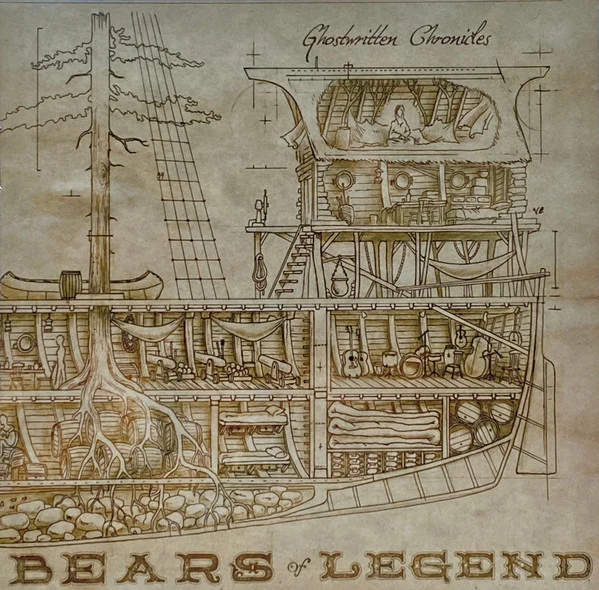 Ghostwritten Chronicles
BEARS of LEGEND